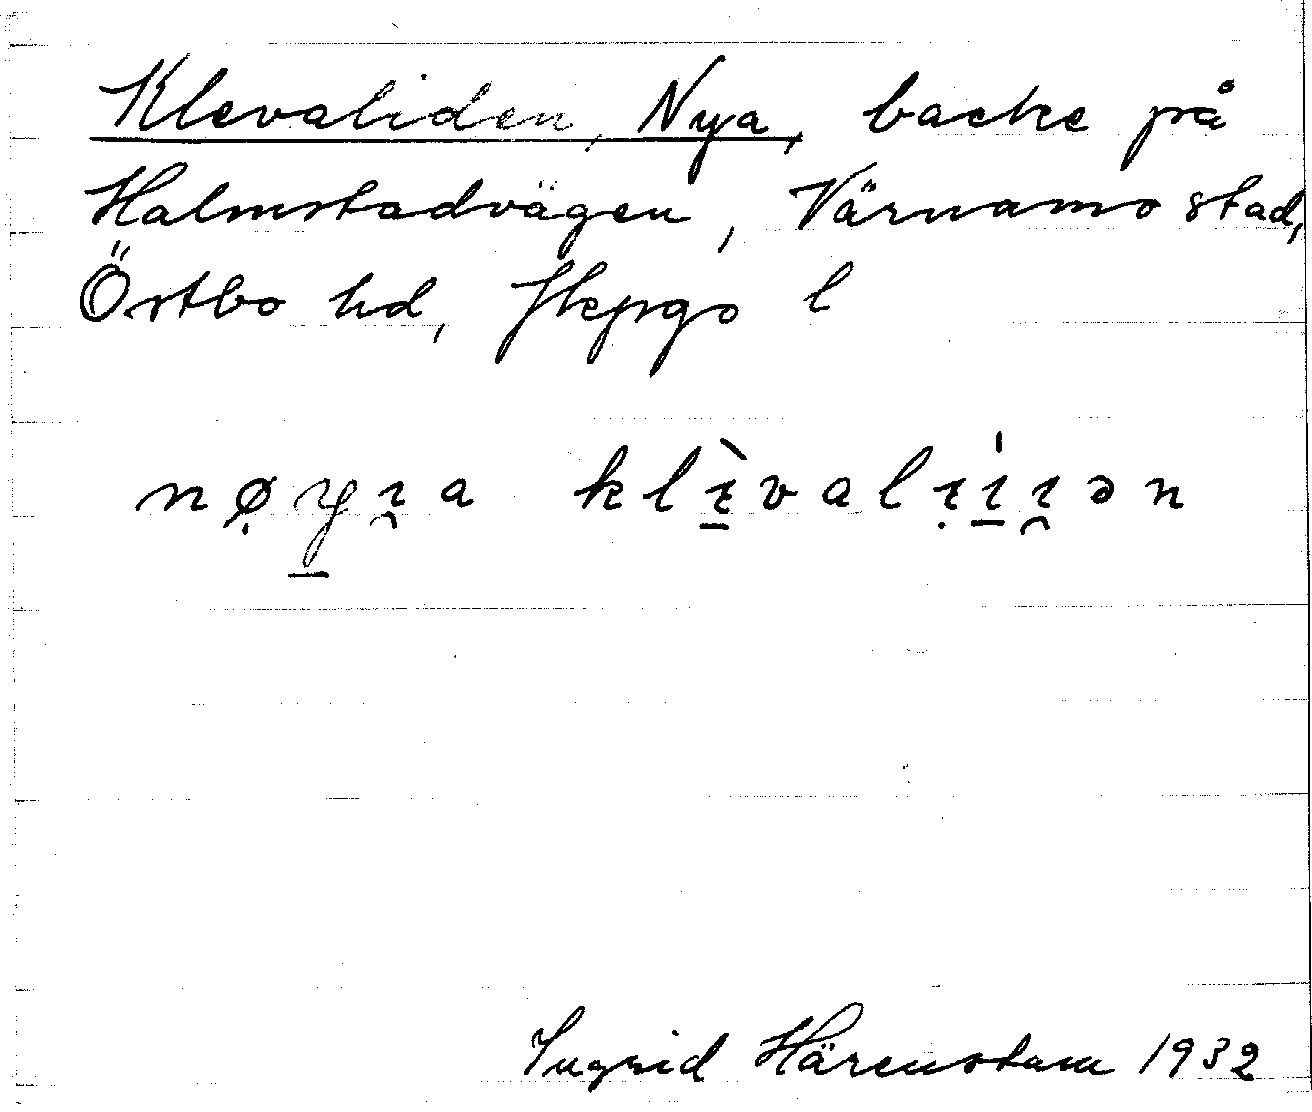 Klevaliden, Nya, backe på
Halmstadvägen, Värnamo stad,
Östbo hd, Jkpgs l
nø̣y̠ɪ̯a klɪ̠̀valɪ̣ɪ̠́ɪ̯ən
Ingrid Härenstam 1932